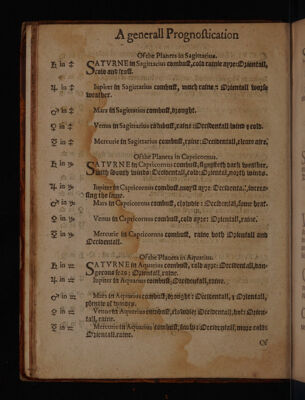 A generall Prognostication
Of the Planets in Sagittarius.
♄ in ♐ SATVRNE in Sagittarius combust, cold rainie ayre: Orientall,
cold and frost.
♃ in ♐ Iupiter in Sagittarius combust, much raine: Orientall worse
weather.
♂ in ♐ Mars in Sagittarius combust, drought.
♀ in ♐ Venus in Sagittarius combust, raine: Occidentall wind & cold.
☿ in ♐ Mercurie in Sagittarius combust, raine: Occidentall, cleare aire.
Of the Planets in Capricornus.
♄ in ♑ SATVRNE in Capricornus combust, signifieth dark weather,
with South winds: Occidentall, cold: Orientall, north winds.
♃ in ♑ Iupiter in Capricornus combust, moyst ayre: Occidentall,
the same.
♂ in ♑ Mars in Capricornus combust, clowdie: Occidentall, some heat.
♀ in ♑ Venus in Capricornus combust, cold ayre: Occidentall, raine.
☿ in ♑ Mercurie in Capricornus combust, raine both Orientall and
Occidentall.
Of the Planets in Aquarius.
♄ in ♒ SATVRNE in Aquarius combust, cold ayre: Occidentall, dan-
gerous seas: Orientall, raine.
♃ in ♒ Iupiter in Aquarius combust, Occidentall, raine.
♂ in ♒ Mars in Aquarius combust, drought: Occidentall, & Orientall,
plentie of windes.
♀ in ♒ Venus in Aquarius combust, clowdie: Occidentall, Orien-
tall, raine.
☿ in ♒ Mercurie in Aquarius combust, Occidentall, more cold:
Orientall, raine.
Of